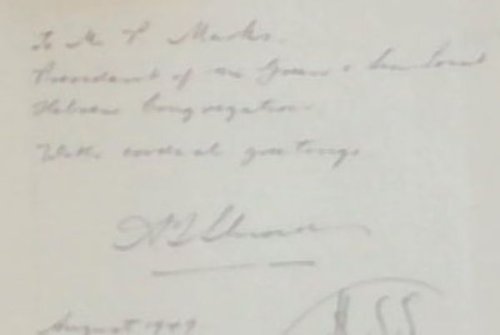 To Mr P Marks
President of the
Hebrew Congregation
With cordial greetings
August 1949